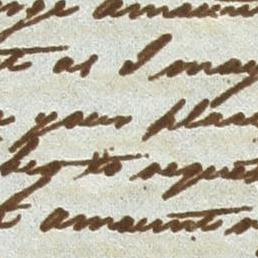 amount
as I may
your place
beg to request
amount